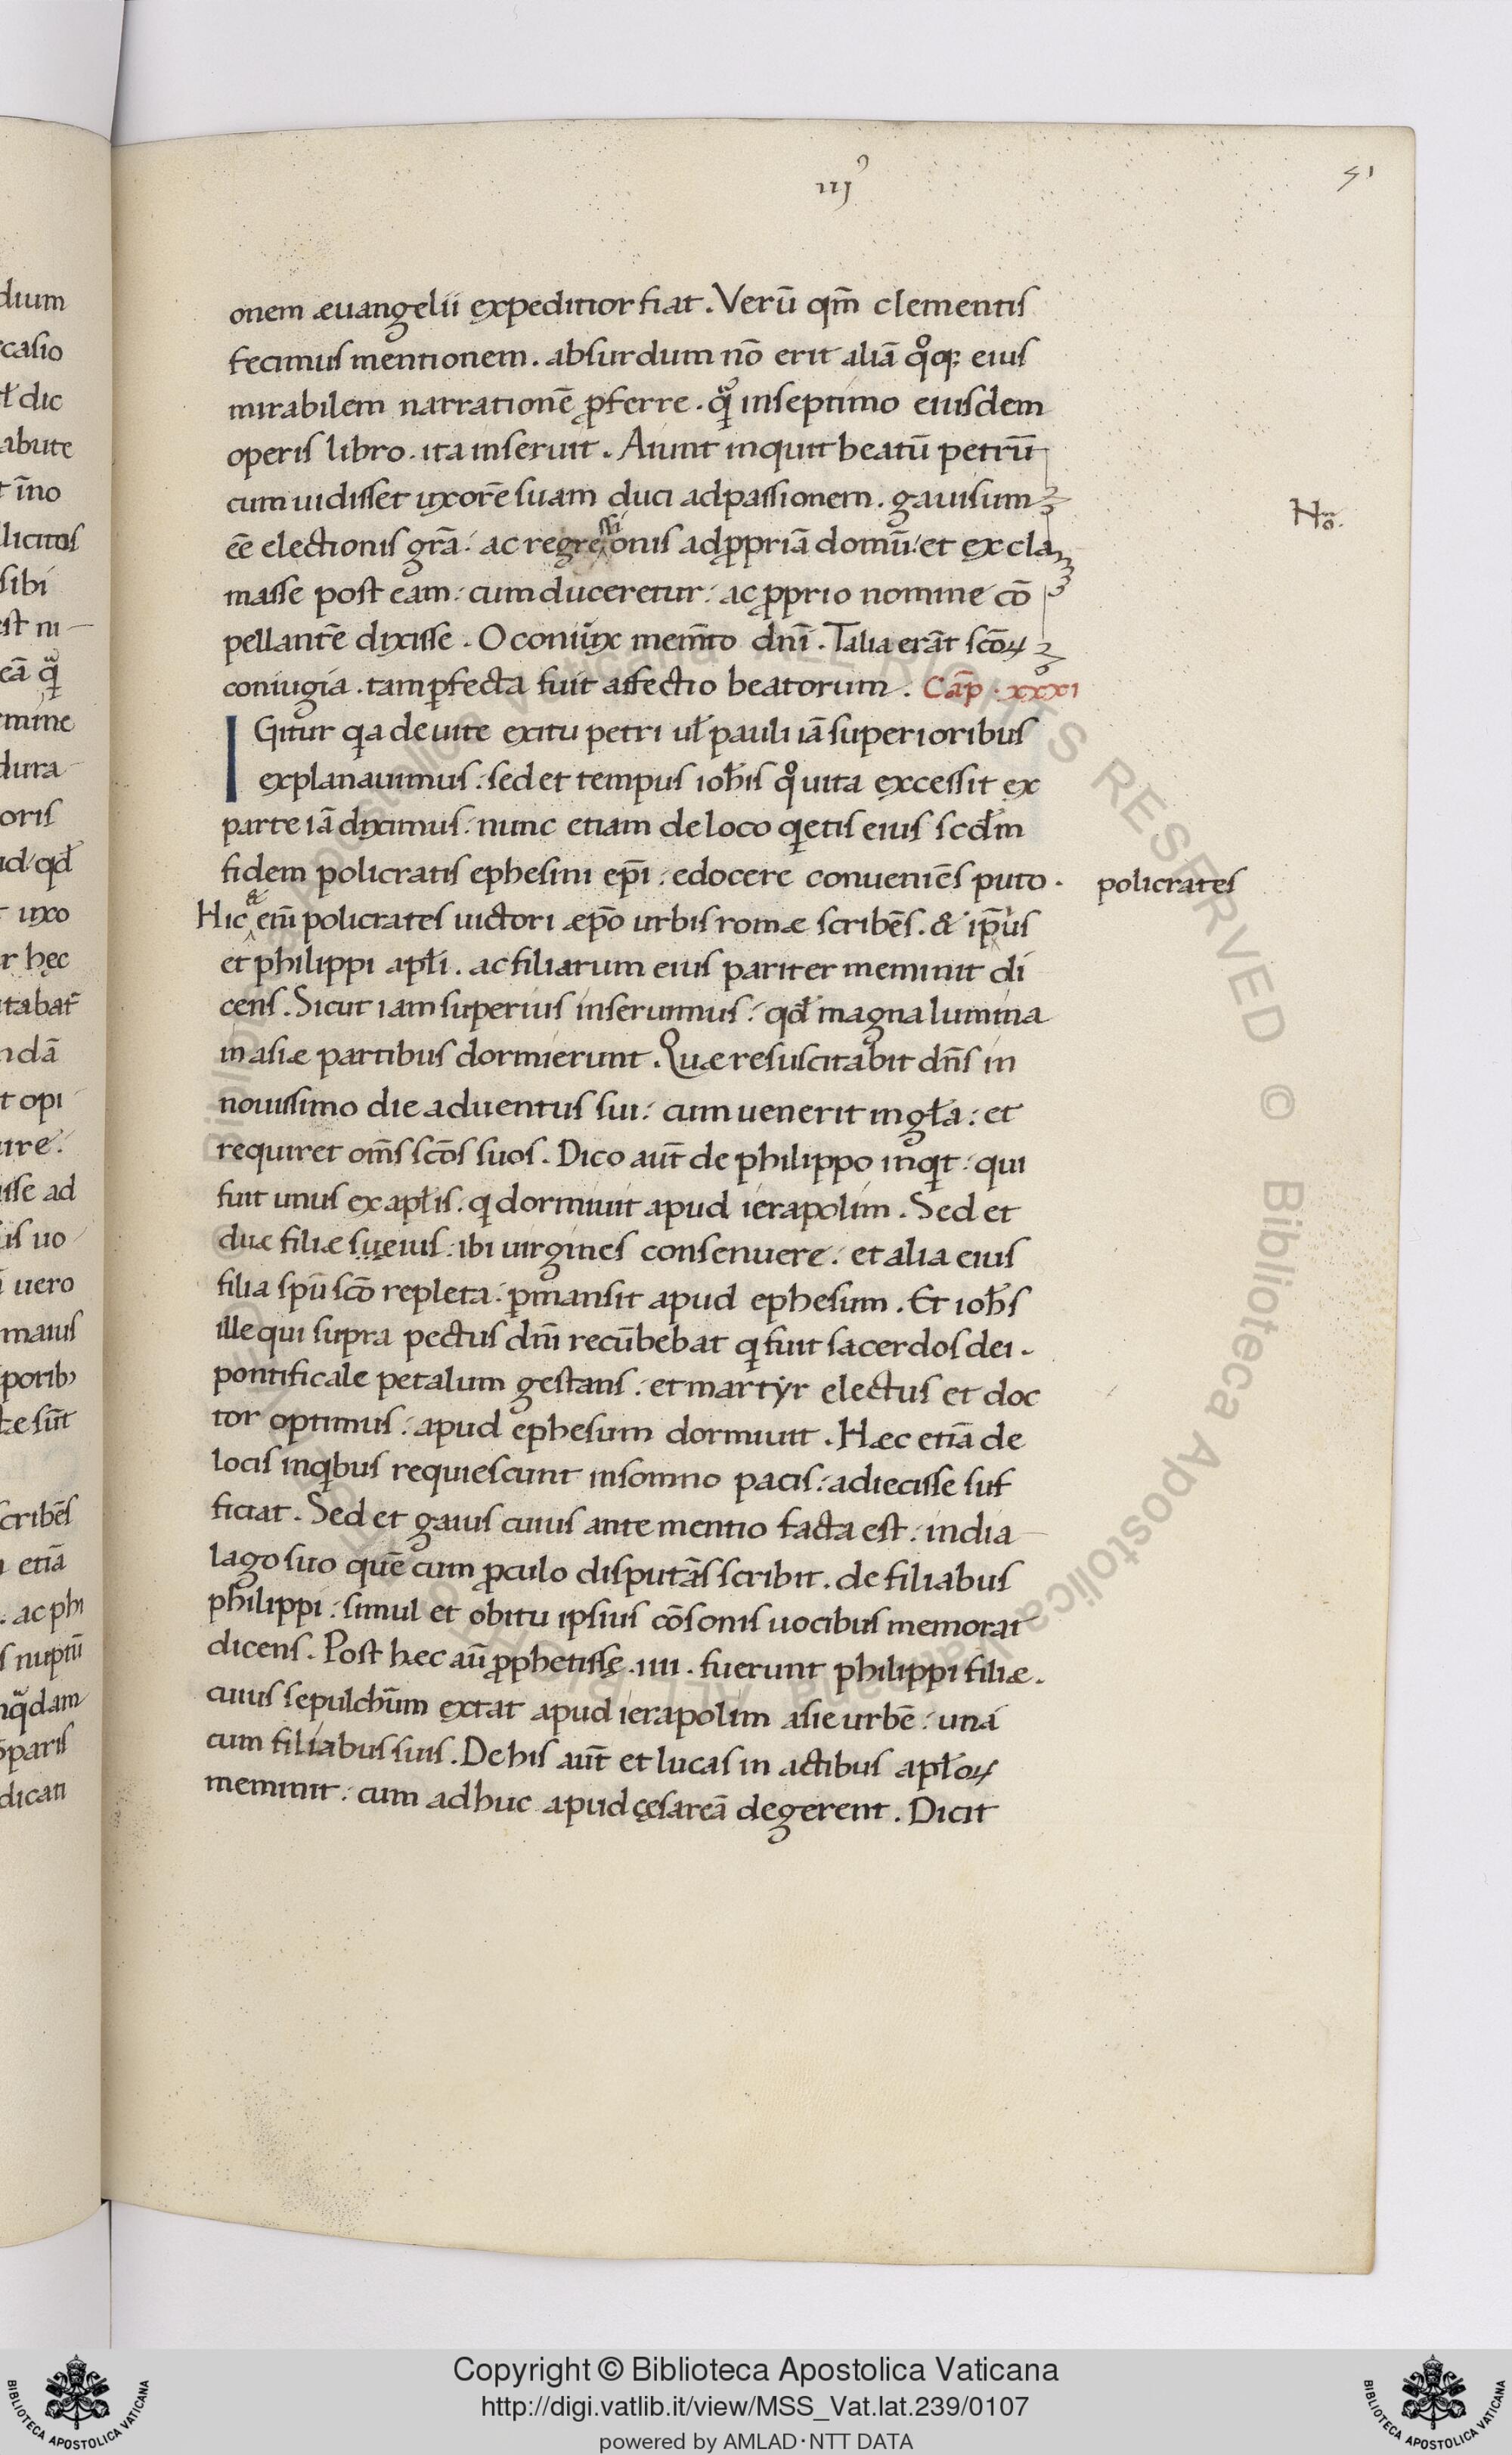 iij⁹
51
onem æuangelii expeditior fiat . Verū qm̄ clementis
fecimus mentionem . absurdum nō erit aliā qͦq; eius
mirabilem narrationē ꝓferre . inseptimo eiusdem
operis libro . ita inseruit . Aiunt inquit beatū petrū
cum uidisset uxorē suam duci adpassionem . gauisum
eē electionis grā : ac regressionis adꝓpriā domū : et excla
masse post eam : cum duceretur : ac ꝓprio nomine cō
pellantē dixisse . O coniunx mem̄to dnī . Talia erāt scōꝝ
coniugia . tam ꝑfecta fuit affectio beatorum . Cap̄ . xxxi
IGitur qia de uite exitu petri ul̄ pauli iā superioribus
explanauimus : sed et tempus ioh̄is qͦ uita excessit ex
parte iā diximus : nunc etiam de loco qietis eius scd̄m
fidem policratis ephesini ep̄i : edocere conueniēs puto .
policrates
Hic & em̄ policrates uictori æpō urbis romæ scribēs . & ip̄ius
et philippi apl̄i . ac filiarum eius pariter meminit di
cens . Sicut iam superius inseruimus : qd̄ magna lumina
in asiæ partibus dormierunt . Quæ resuscitabit dn̄s in
nouissimo die aduentus sui : cum uenerit in gl̄a : et
requiret om̄s scōs suos . Dico aūt de philippo inqit : qui
fuit unus ex apl̄is : qi dormiuit apud ierapolim . Sed et
duæ filiæ su̩e̩ius : ibi uirgines consenuere : et alia eius
filia spū scō repleta : ꝑmansit apud ephesum . Et ioh̄s
ille qui supra pectus dnī recūbebat qi fuit sacerdos dei .
pontificale petalum gestans : et martyr electus et doc
tor optimus : apud ephesum dormiuit . Hæc etiā de
locis inqibus requiescunt insomno pacis : adiecisse suf
ficiat . Sed et gaius cuius ante mentio facta est : india
lago suo quē cum ꝓculo disputās scribit . de filiabus
philippi : simul et obitu ipsius cōsonis uocibus memorat
dicens . Post hæc aū ꝓphetissę . iiii . fuerunt philippi filiæ .
cuius sepulchūm extat apud ierapolim asie urbē : una
cum filiabus suis . De his aūt et lucas in actibus apl̄oꝝ
meminit : cum adhuc apud cęsareā degerent . Dicit
Copyright © Biblioteca Apostolica Vaticana
http://digi.vatlib.it/view/MSS_Vat.lat.239/0107
powered by AMLAD·NTT DATA